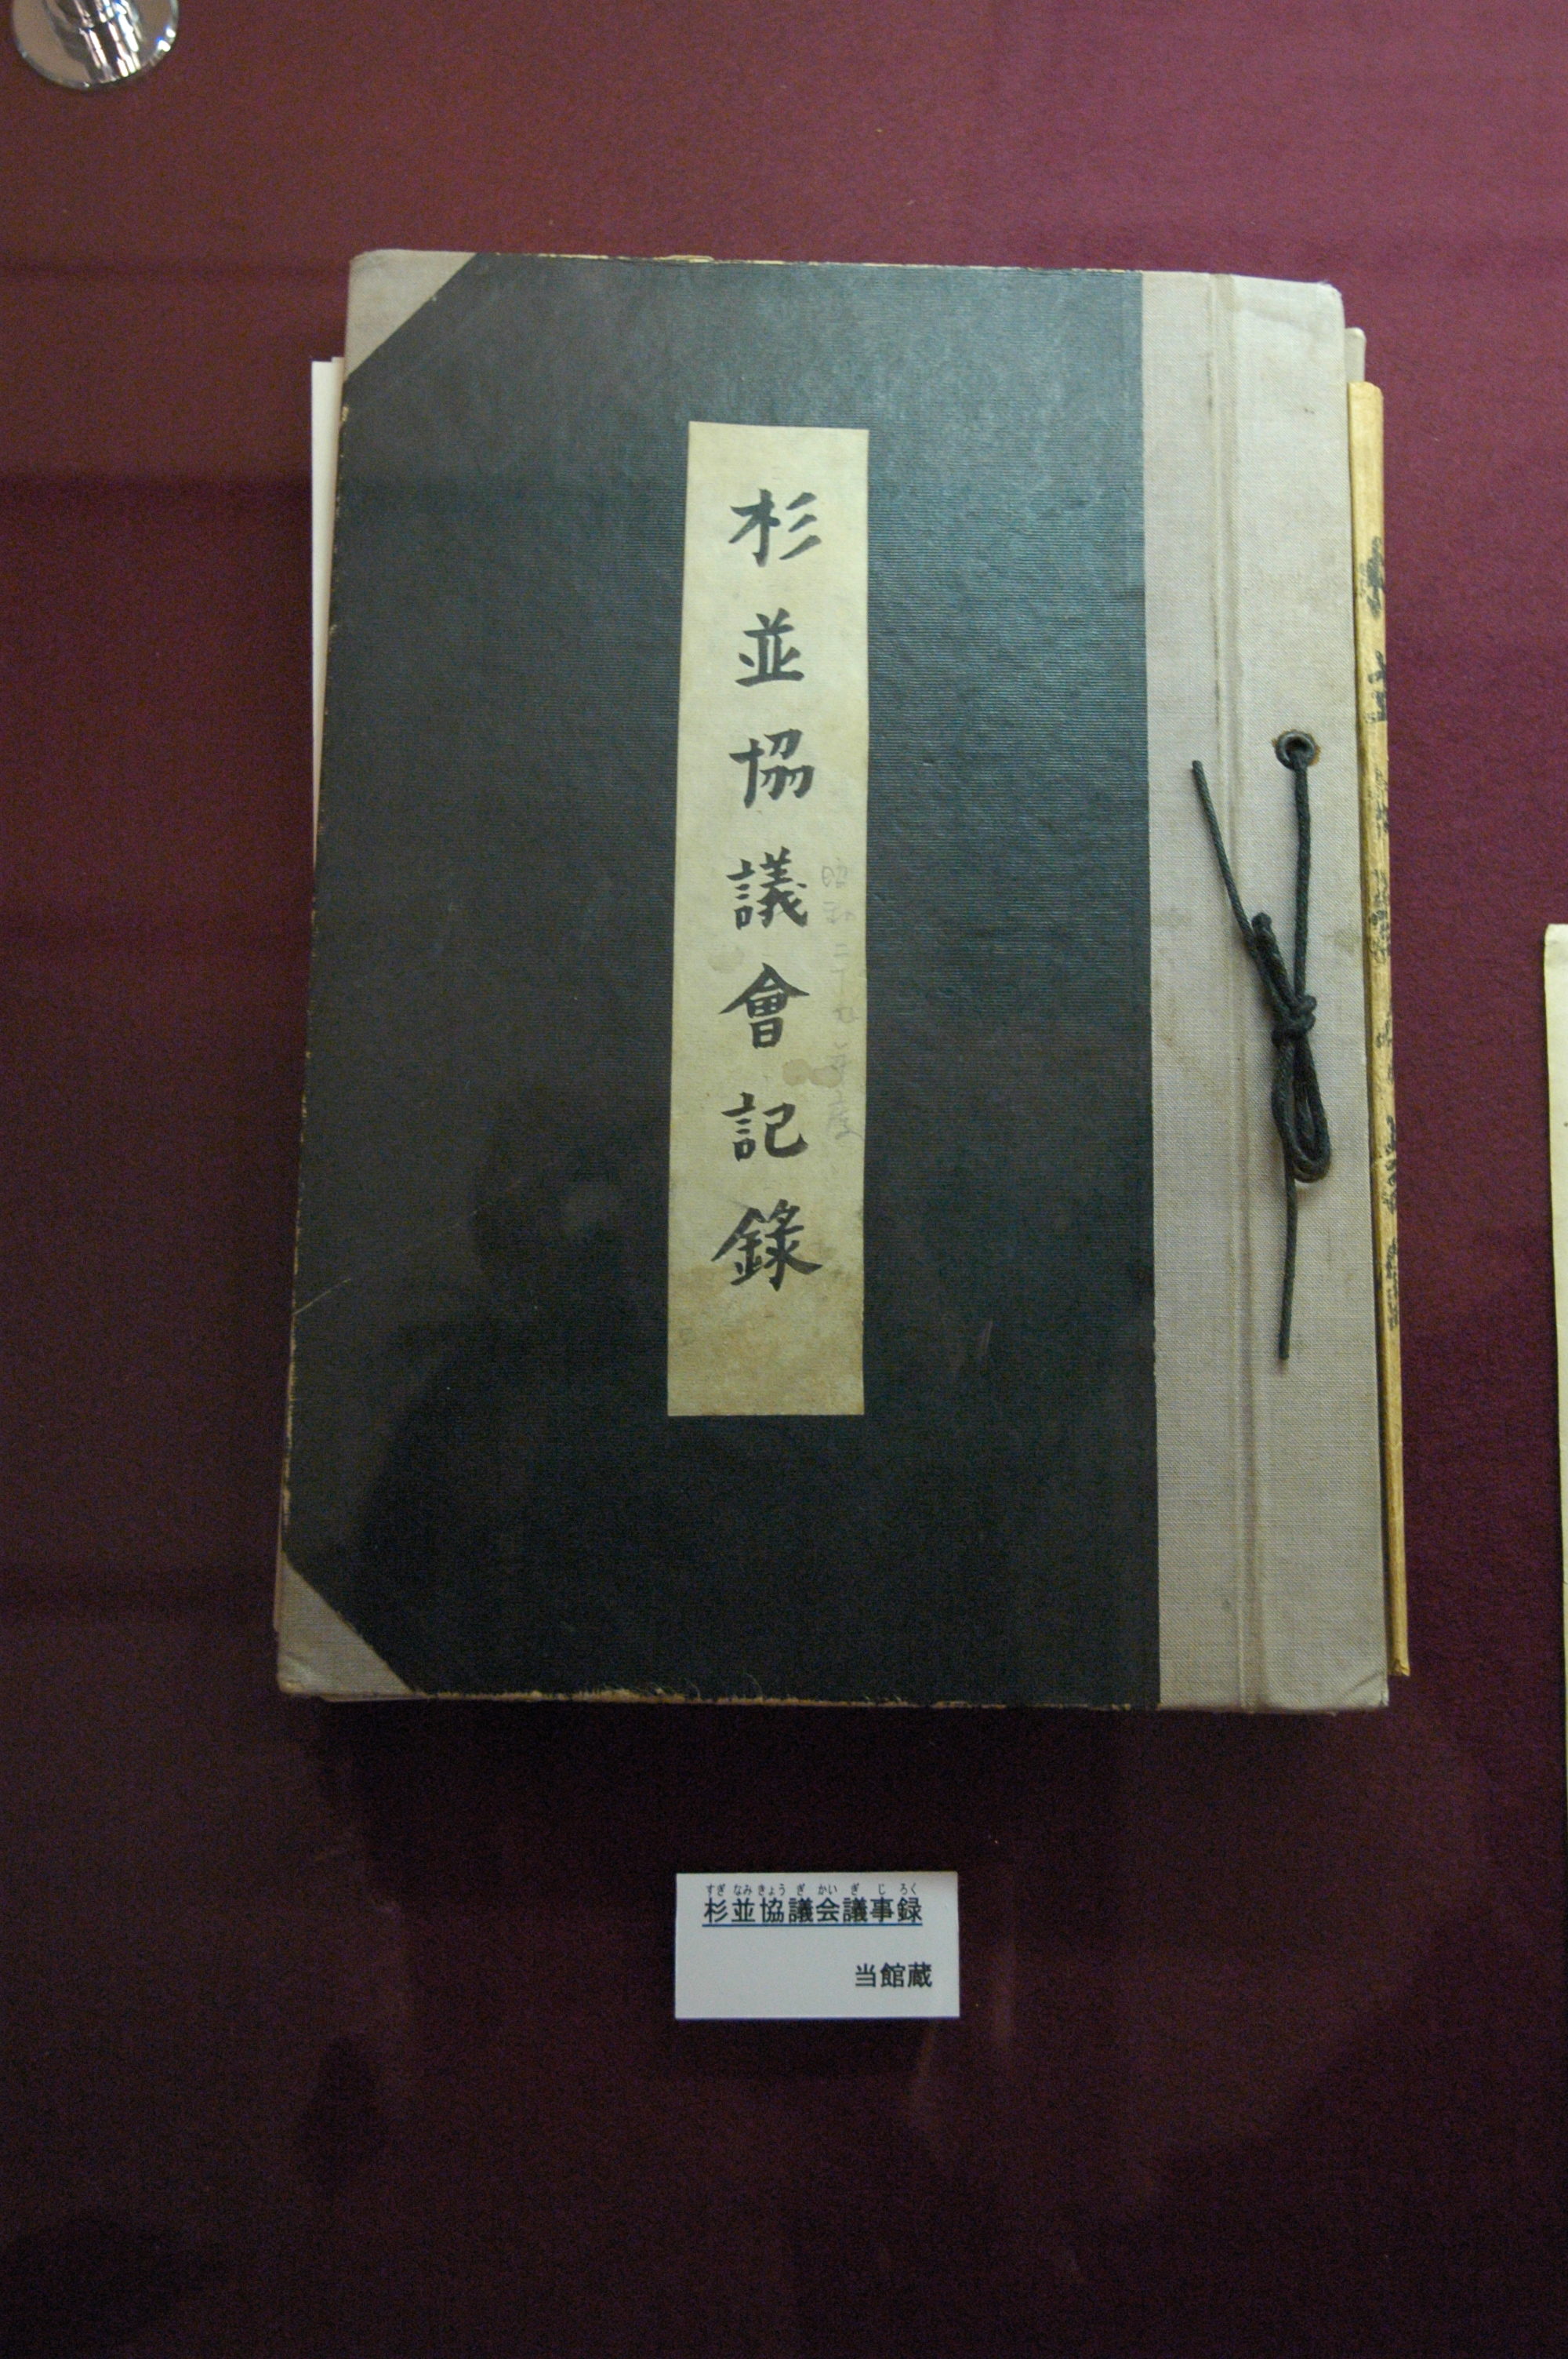 杉並協議會記錄
昭和二十九年度
すぎ なみ きょう ぎ かい ぎ じ ろく
杉並協議会議事録
当館蔵